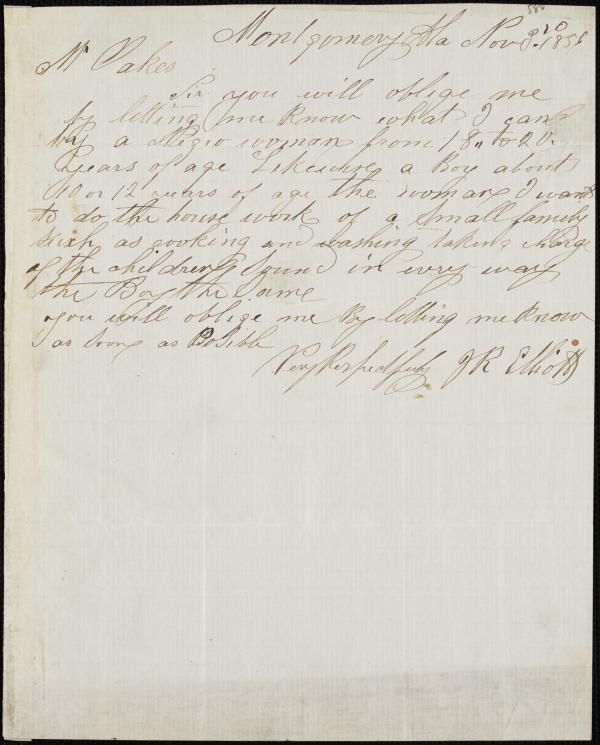 Montgomery Ala Nov 10 1856
Mr Oakes
Sir you will oblige me
by letting me know what I can
by a Negro woman from 18 to 20
years of age Likewise a Boy about
10 or 12 years of age the woman I want
to do the house work of a small family
such as cooking and washing taking charge
of the children Sound in every way
the Boy the same
you will oblige me by letting me know
as soon as Posible
Very Respectfuly J R Elliott